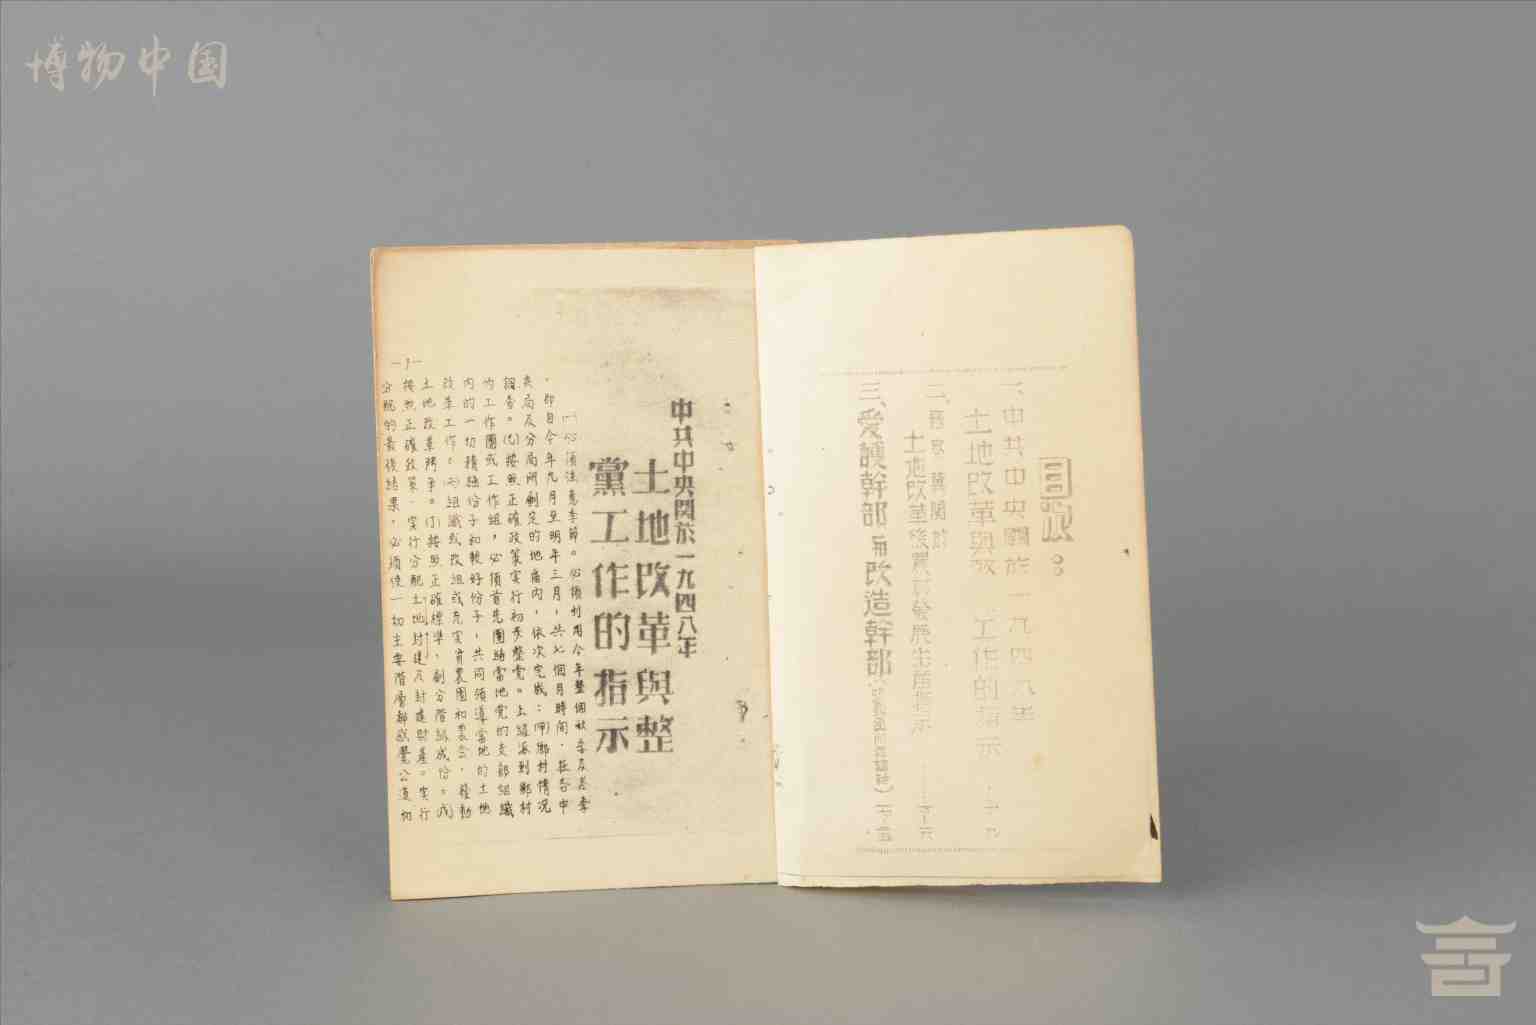 博物中国
目次：
一、中共中央關於一九四八年
土地改革與整　工作的指示
土地改革後農村發展生產指示
三、愛護幹部而改造幹部
中共中央関於一九四八年
土地改革與整
黨工作的指示
(一)必須注意季節。必須利用今年整個秋季及冬季
，即自今年九月至明年三月，共七個月時間，在各中
央局及分局所劃定的地區内，依次完成：(甲)鄉村情況
調查。(乙)按照正確政策实行初步整党。上級派到鄉村
的工作團或工作組，必須首先團結當地党的支部組織
内的一切積極份子和較好份子，共同領導當地的土地
改革工作。(丙)組織或改組或充实貧農團和農会，發動
土地改革鬥争。(丁)按照正確標準，劃分階級成份。(戊)
按照正確政策，实行分配土地封建及封建財產。实行
分配的最後結果，必須使一切主要階層都感覺公道和
—1—